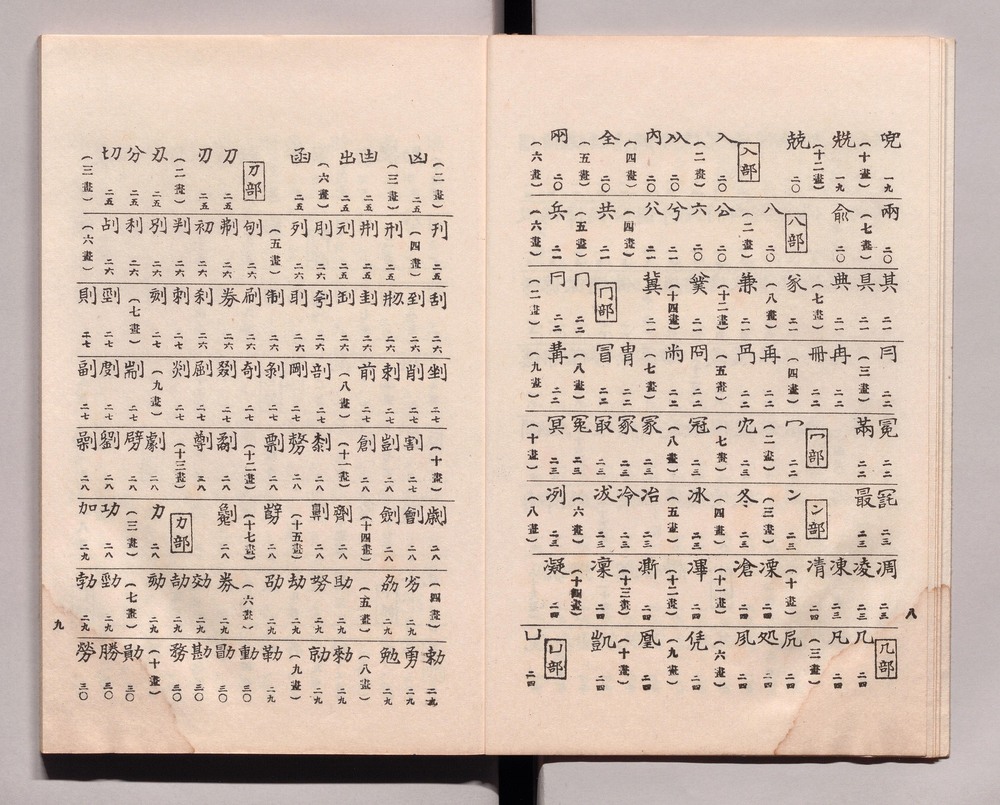 兜 一九 (十畫) 兟 一九 (十二畫) 兢 二〇 入部 入 二〇 (二畫) 㒰 二〇 內 二〇 (四畫) 全 二〇 (五畫) 㒳 二〇 (六畫)
兩 二〇 (七畫) 兪 二〇 八部 八 二〇 (二畫) 公 二〇 六 二〇 兮 二一 (四畫) 共 二一 (五畫) 兵 二一 (六畫)
其 二一 具 二一 典 二一 (七畫) 㒸 二一 (八畫) 兼 二一 (十二畫) 二一 (十四畫) 冀 二一 冂部 冂 二二 冃 二二 (二畫)
冄 二二 (三畫) 冉 二二 冊 二二 (四畫) 再 二二 (五畫) 冏 二二 (七畫) 冑 二二 冒 二二 (八畫) 冓 二二 (九畫)
冕 二二 㒼 二二 冖部 冖 二二 (二畫) 冗 二三 (七畫) 冠 二三 (八畫) 冢 二三 冣 二三 冤 二三 冥 二三 (十畫)
最 二三 冫部 冫 二三 (三畫) 冬 二三 (四畫) 冰 二三 (五畫) 冶 二三 冷 二三 冹 二三 (六畫) 冽 二三 (八畫)
凋 二三 凌 二三 凍 二三 凊 二四 (十畫) 凓 二四 凔 二四 (十一畫) 滭 二四 (十二畫) 凘 二四 (十三畫) 凜 二四 (十四畫) 凝 二四
八
几部 几 二四 凡 二四 (三畫) 凥 二四 処 二四 夙 二四 (六畫) 凭 二四 (九畫) 凰 二四 (十畫) 凱 二四 凵部 凵 二四
(二畫) 凶 二五 (三畫) 凷 二五 出 二五 (六畫) 函 二五 刀部 刀 二五 刃 二五 (二畫) 刅 二五 分 二五 切 二五 (三畫)
刊 二五 (四畫) 刑 二五 刱 二五 刓 二五 刖 二五 列 二五 (五畫) 刨 二六 刜 二六 初 二六 判 二六 別 二六 利 二六 刮 二六 (六畫)
刮 二六 到 二六 刱 二六 刲 二六 刳 二六 刵 二六 制 二六 刷 二六 券 二六 刹 二六 刺 二六 刻 二六 (七畫) 剄 二七 則 二七
剉 二七 削 二七 剌 二七 前 二七 (八畫) 剖 二七 剛 二七 剝 二七 剞 二七 剟 二七 剭 二七 剡 二七 (九畫) 剬 二七 剫 二七 副 二七
(十畫) 割 二七 剴 二八 創 二八 (十一畫) 剺 二八 剽 二八 (十二畫) 劀 二八 劋 二八 (十三畫) 劇 二八 劈 二八 劉 二八 二八
劌 二八 劊 二八 (十四畫) 劍 二八 劑 二八 劓 二八 (十五畫) 二八 (十七畫) 二八 力部 力 二八 (三畫) 功 二八 加 二九
(四畫) 劣 二九 劦 二九 (五畫) 助 二九 努 二九 劫 二九 劭 二九 (六畫) 劵 二九 効 二九 劼 二九 劾 二九 (七畫) 勁 二九 勃 二九
九
勅 二九 勇 二九 勉 二九 (八畫) 勑 二九 勍 二九 (九畫) 勒 二九 動 三〇 勖 三〇 勘 三〇 務 三〇 (十畫) 勛 三〇 勝 三〇 勞 三〇